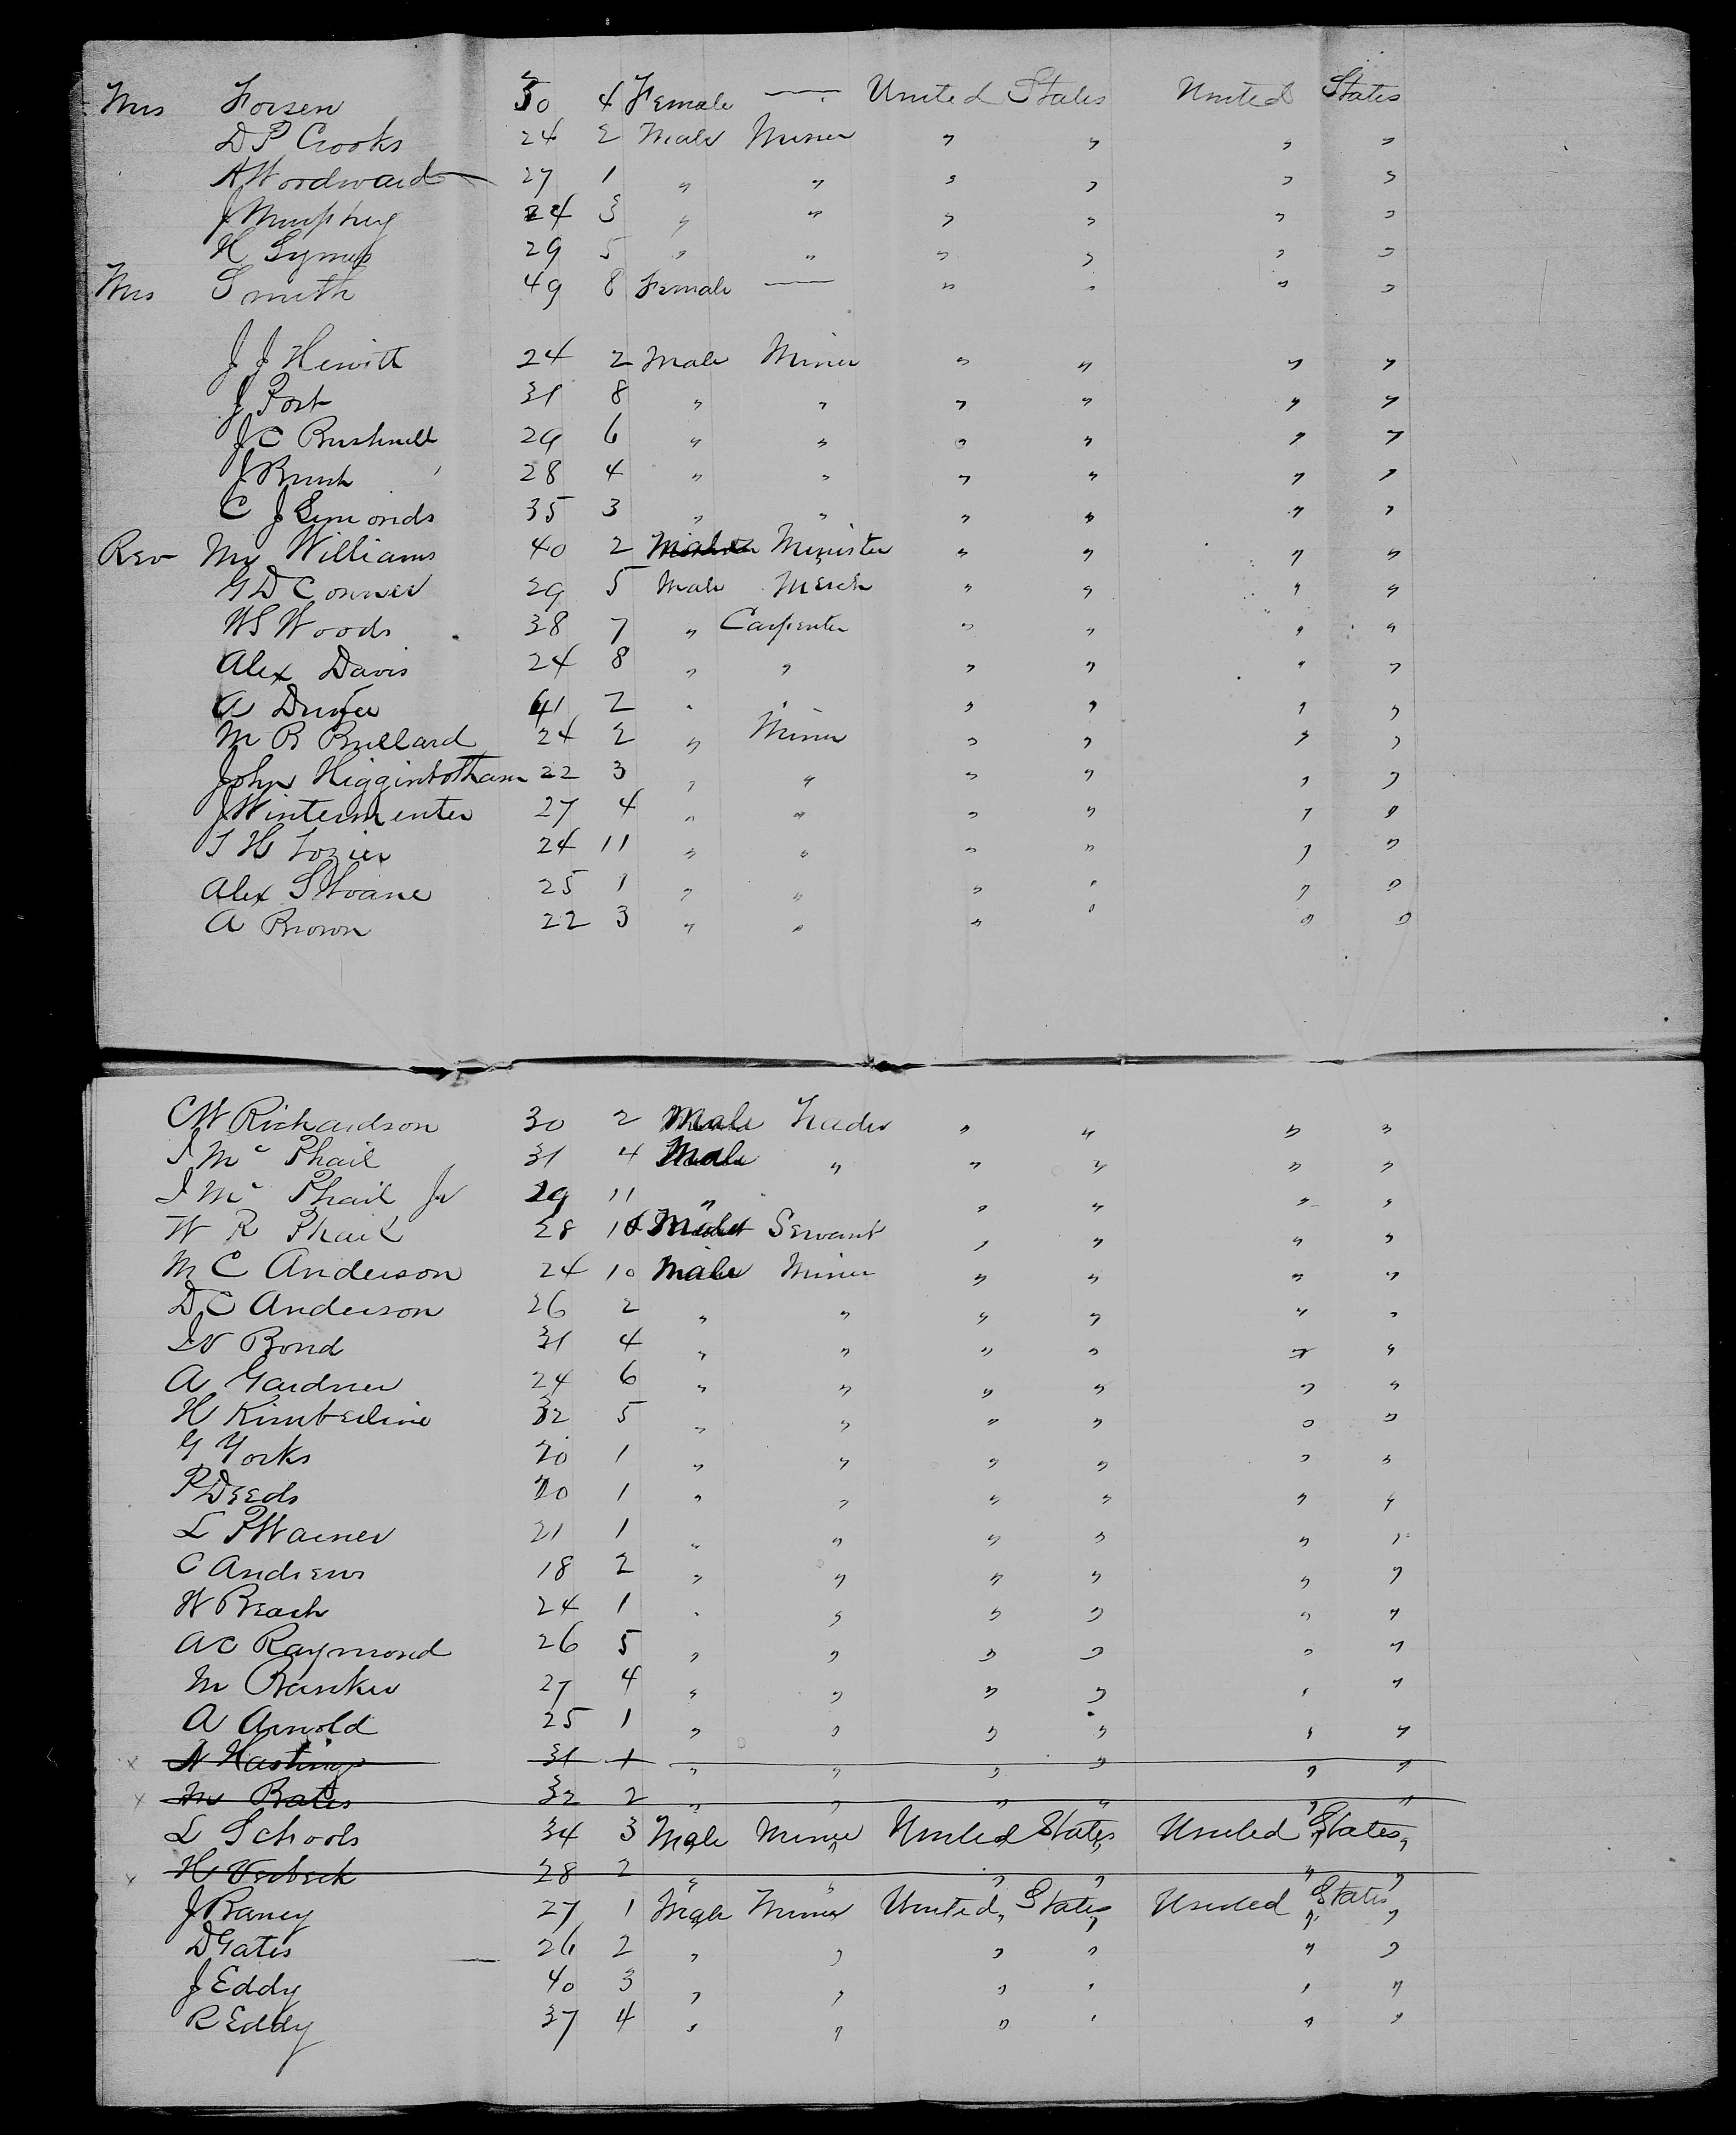 Mrs Forsen 30 4 Female — United States United States
D P Crooks 24 2 Male Miner " " " "
A Woodward 27 1 " " " " " "
J Murphey 24 3 " " " " " "
H 29 5 " " " " " "
Mrs Smith 49 8 Female — " " " "
J J Hewitt 24 2 Male Miner " " " "
J Post 31 8 " " " " " "
J C Bushnell 29 6 " " " " " "
J Bush 28 4 " " " " " "
C J Simonds 35 3 " " " " " "
Rev Mr Williams 40 2 Minister " " " "
G D Conner 29 5 Male Merch " " " "
W S Woods 38 7 " Carpenter " " " "
Alex Davis 24 8 " " " " " "
A 41 2 " " " " " "
M B Bullard 24 2 " Miner " " " "
John Higginbotham 22 3 " " " " " "
J Wintermenter 27 4 " " " " " "
T H Lozier 24 11 " " " " " "
Alex Sloane 25 1 " " " " " "
A Brown 22 3 " " " " " "
C W Richardson 30 2 Male Trader " " " "
J Mc Phail 31 4 Male " " " " "
J Mc Phail Jr 29 11 " " " " "
W R Phail 28 10 Male Servant " " " "
M C Anderson 24 10 Male Miner " " " "
D C Anderson 26 2 " " " " " "
Bond 31 4 " " " " " "
A Gardner 24 6 " " " " " "
H Kimberline 32 5 " " " " " "
G Yorks 20 1 " " " " " "
P Deeds 20 1 " " " " " "
L P Warner 21 1 " " " " " "
C Andrews 18 2 " " " " " "
W Beach 24 1 " " " " " "
A C Raymond 26 5 " " " " " "
M Banker 27 4 " " " " " "
A Arnold 25 1 " " " " " "
x A Hastings 31 1 " " " " " "
x M Bates 32 2 " " " " " "
L Schools 34 3 Male Miner United States United States
x H Verbeck 28 2 " " " " " "
J Raney 27 1 Male Miner United States United States
D Gates 26 2 " " " " " "
J Eddy 40 3 " " " " " "
R Eddy 37 4 " " " " " "